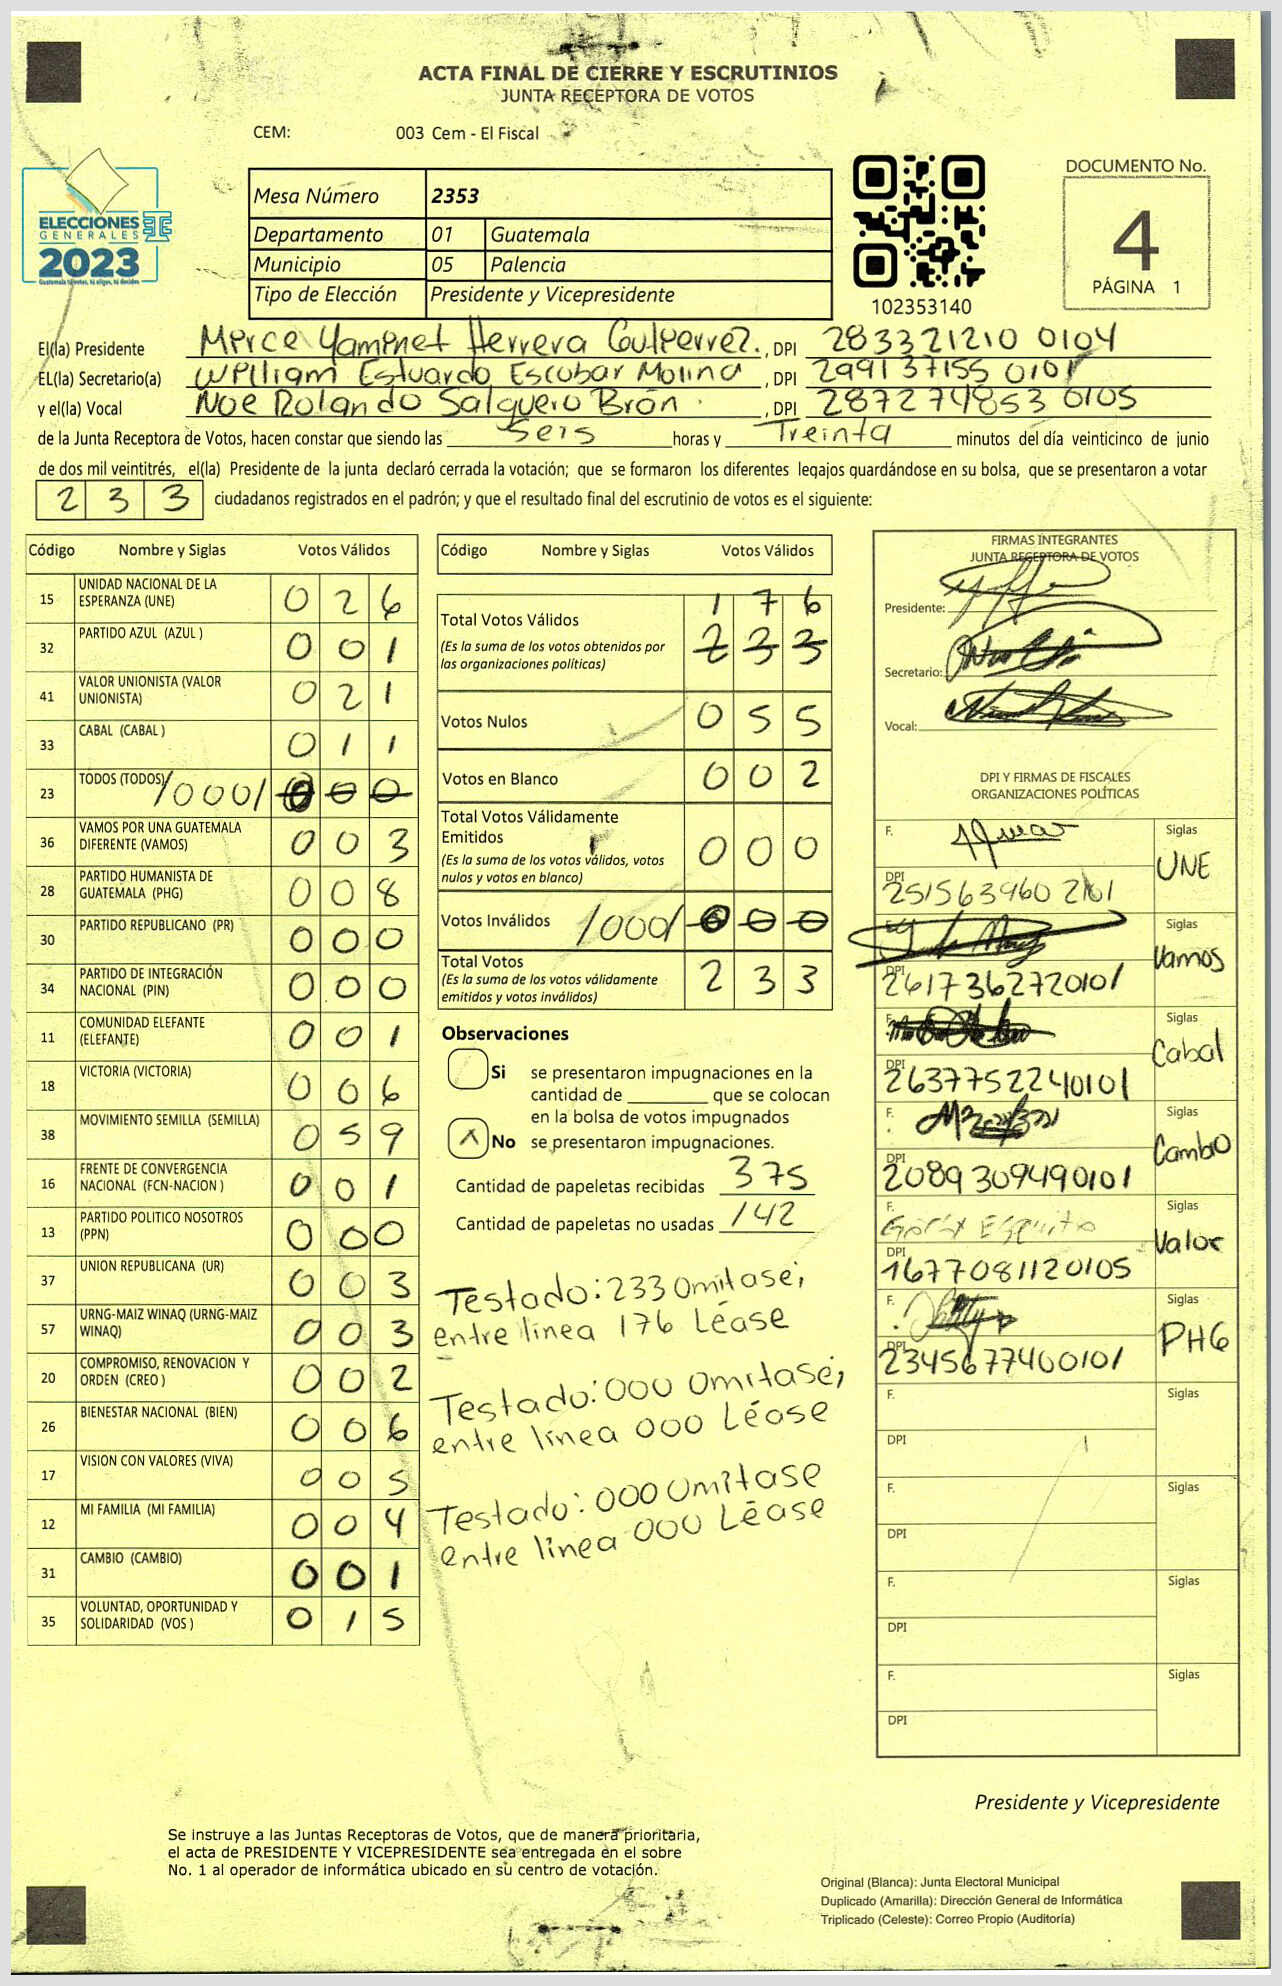 ACTA FINAL DE CIERRE Y ESCRUTINIOS
JUNTA RECEPTORA DE VOTOS
CEM: 003 Cem - El Fiscal
ELECCIONES
GENERALES
2023
Guatemala tú votas, tú eliges, tú decides
Mesa Número 2353
Departamento 01 Guatemala
Municipio 05 Palencia
Tipo de Elección Presidente y Vicepresidente
102353140
DOCUMENTO No.
4
PÁGINA 1
El(la) Presidente Herrera , DPI 283321210 0104
EL(la) Secretario(a) William Estuardo Escobar Molina , DPI 299137155 0101
y el(la) Vocal Noe Rolando Salguero , DPI 287274853 0105
de la Junta Receptora de Votos, hacen constar que siendo las Seis horas y Treinta minutos del día veinticinco de junio
de dos mil veintitrés, el(la) Presidente de la junta declaró cerrada la votación; que se formaron los diferentes legajos guardándose en su bolsa, que se presentaron a votar
2 3 3 ciudadanos registrados en el padrón; y que el resultado final del escrutinio de votos es el siguiente:
Código Nombre y Siglas Votos Válidos
15 UNIDAD NACIONAL DE LA ESPERANZA (UNE) 0 2 6
32 PARTIDO AZUL (AZUL ) 0 0 1
41 VALOR UNIONISTA (VALOR UNIONISTA) 0 2 1
33 CABAL (CABAL ) 0 1 1
23 TODOS (TODOS) /000/ 0 0 0
36 VAMOS POR UNA GUATEMALA DIFERENTE (VAMOS) 0 0 3
28 PARTIDO HUMANISTA DE GUATEMALA (PHG) 0 0 8
30 PARTIDO REPUBLICANO (PR) 0 0 0
34 PARTIDO DE INTEGRACIÓN NACIONAL (PIN) 0 0 0
11 COMUNIDAD ELEFANTE (ELEFANTE) 0 0 1
18 VICTORIA (VICTORIA) 0 0 6
38 MOVIMIENTO SEMILLA (SEMILLA) 0 5 9
16 FRENTE DE CONVERGENCIA NACIONAL (FCN-NACION ) 0 0 1
13 PARTIDO POLITICO NOSOTROS (PPN) 0 0 0
37 UNION REPUBLICANA (UR) 0 0 3
57 URNG-MAIZ WINAQ (URNG-MAIZ WINAQ) 0 0 3
20 COMPROMISO, RENOVACION Y ORDEN (CREO ) 0 0 2
26 BIENESTAR NACIONAL (BIEN) 0 0 6
17 VISION CON VALORES (VIVA) 0 0 5
12 MI FAMILIA (MI FAMILIA) 0 0 4
31 CAMBIO (CAMBIO) 0 0 1
35 VOLUNTAD, OPORTUNIDAD Y SOLIDARIDAD (VOS ) 0 1 5
Código Nombre y Siglas Votos Válidos
1 7 6
Total Votos Válidos 2 3 3
(Es la suma de los votos obtenidos por
las organizaciones políticas)
Votos Nulos 0 5 5
Votos en Blanco 0 0 2
Total Votos Válidamente
Emitidos 0 0 0
(Es la suma de los votos válidos, votos
nulos y votos en blanco)
Votos Inválidos /000/ 0 0 0
Total Votos 2 3 3
(Es la suma de los votos válidamente
emitidos y votos inválidos)
Observaciones
Si se presentaron impugnaciones en la
cantidad de ________ que se colocan
en la bolsa de votos impugnados
X No se presentaron impugnaciones.
Cantidad de papeletas recibidas 375
Cantidad de papeletas no usadas 142
Testado: 233 Omitase;
entre línea 176 Léase
Testado: 000 Omitase;
entre línea 000 Léase
Testado: 000 Omitase
entre línea 000 Léase
FIRMAS INTEGRANTES
JUNTA RECEPTORA DE VOTOS
Presidente:
Secretario:
Vocal:
DPI Y FIRMAS DE FISCALES
ORGANIZACIONES POLÍTICAS
F. Siglas
UNE
DPI
F. Siglas
Vamos
DPI 2617362720101
F. Siglas
Cabal
DPI 2637752240101
F. Siglas
Cambio
DPI 2089309490101
F. Siglas
Valor
DPI 1677081120105
F. Siglas
PHG
DPI 2345677400101
F. Siglas
DPI
F. Siglas
DPI
F. Siglas
DPI
F. Siglas
DPI
Presidente y Vicepresidente
Se instruye a las Juntas Receptoras de Votos, que de manera prioritaria,
el acta de PRESIDENTE Y VICEPRESIDENTE sea entregada en el sobre
No. 1 al operador de informática ubicado en su centro de votación.
Original (Blanca): Junta Electoral Municipal
Duplicado (Amarilla): Dirección General de Informática
Triplicado (Celeste): Correo Propio (Auditoría)